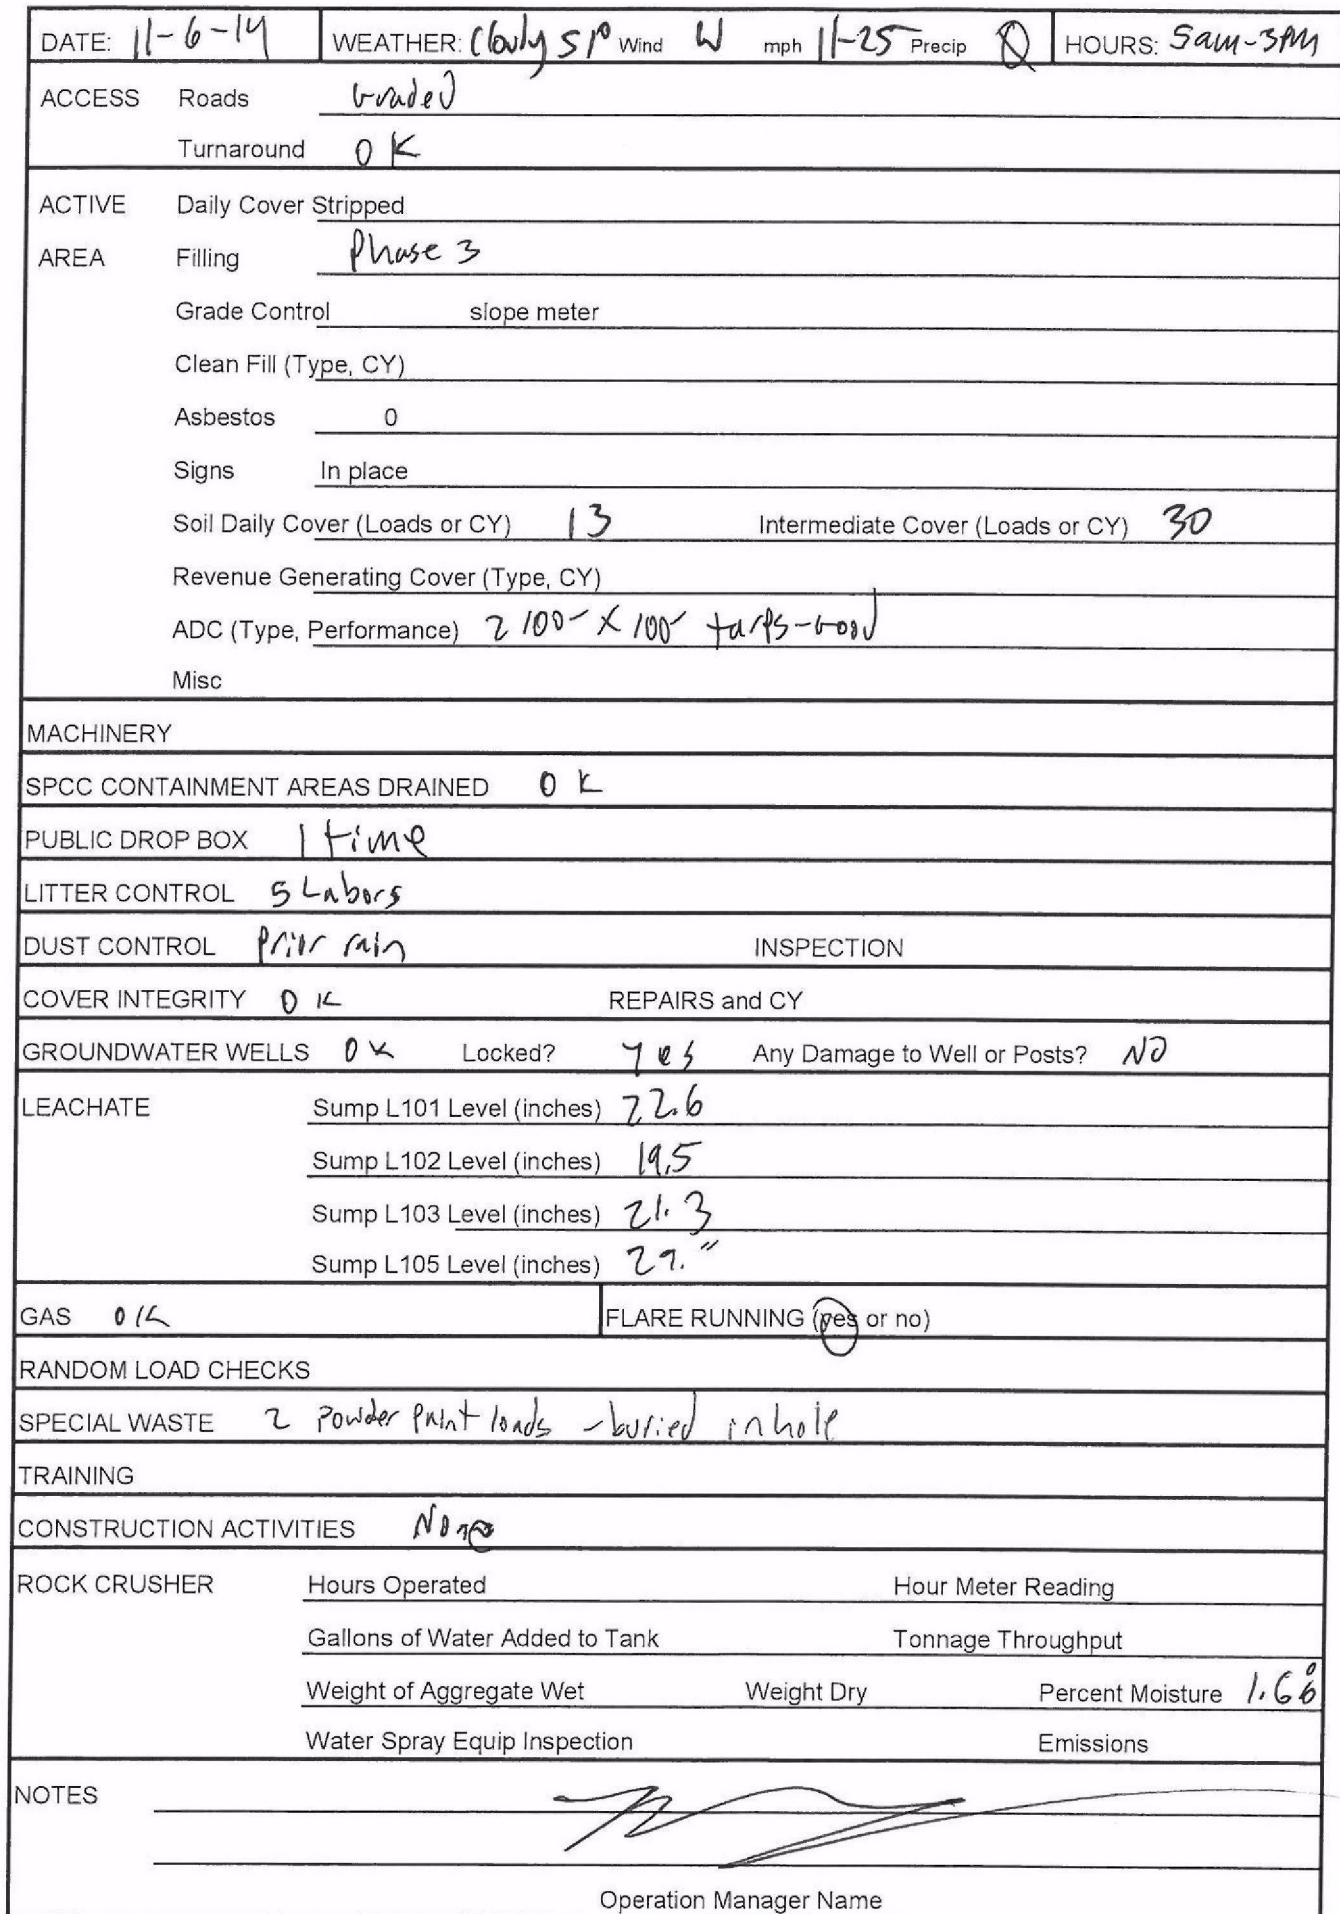 DATE: 11-6-14 WEATHER: Cloudy 51° Wind W mph 11-25 Precip 0 HOURS: 5am-3PM
ACCESS Roads Graded
Turnaround OK
ACTIVE Daily Cover Stripped
AREA Filling Phase 3
Grade Control slope meter
Clean Fill (Type, CY)
Asbestos 0
Signs In place
Soil Daily Cover (Loads or CY) 13 Intermediate Cover (Loads or CY) 30
Revenue Generating Cover (Type, CY)
ADC (Type, Performance) 2 100' X 100' tarps-Good
Misc
MACHINERY
SPCC CONTAINMENT AREAS DRAINED OK
PUBLIC DROP BOX 1 time
LITTER CONTROL 5 Labors
DUST CONTROL Prior rain INSPECTION
COVER INTEGRITY OK REPAIRS and CY
GROUNDWATER WELLS OK Locked? Yes Any Damage to Well or Posts? NO
LEACHATE Sump L101 Level (inches) 22.6
Sump L102 Level (inches) 19.5
Sump L103 Level (inches) 21.3
Sump L105 Level (inches)
GAS OK FLARE RUNNING (yes or no)
RANDOM LOAD CHECKS
SPECIAL WASTE 2 Powder Paint loads - buried in hole
TRAINING
CONSTRUCTION ACTIVITIES None
ROCK CRUSHER Hours Operated Hour Meter Reading
Gallons of Water Added to Tank Tonnage Throughput
Weight of Aggregate Wet Weight Dry Percent Moisture
Water Spray Equip Inspection Emissions
NOTES
Operation Manager Name